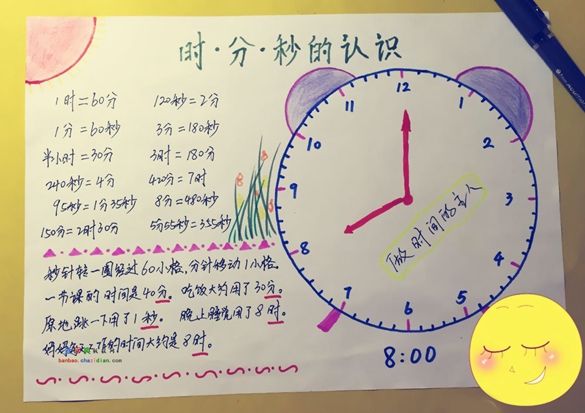 时·分·秒的认识
1时=60分 120秒=2分
1分=60秒 3分=180秒
半小时=30分 3时=180分
240秒=4分 420分=7时
95秒=1分35秒 8分=480秒
150分=2时30分 5分55秒=355秒
秒针转一圈经过60小格,分针移动1小格。
一节课的时间是40分。吃饭大约用了30分。
原地跳一下用了1秒。晚上睡觉用了8时。
时间大约是8时。
banbao.chazidian.com
12
1
2
3
4
5
6
7
8
9
10
11
做时间的主人
8:00